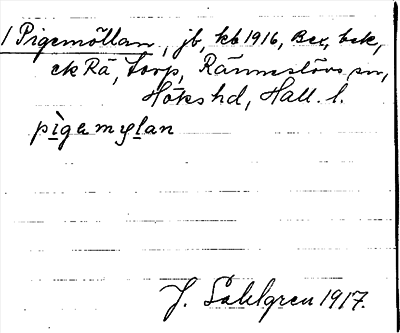 1 Pigemöllan, jb, kb 1916, Bex, bsk,
ek Rä, torp, Ränneslövs sn,
Höks hd, Hall. l.
pìgemylan
J. Sahlgren 1917.